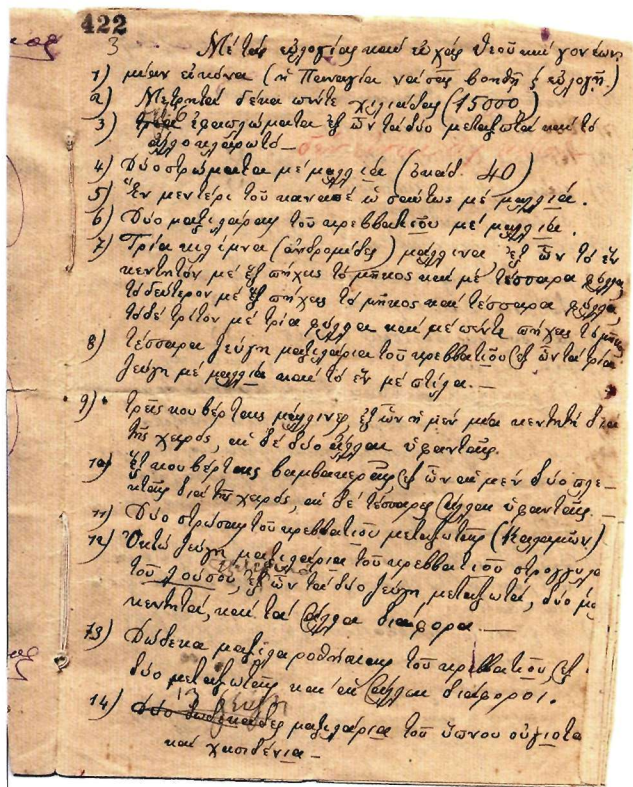 422
3
Μέ τάς εὐλογίας καί εὐχάς Θεοῦ καί γονέων
1) μίαν εἰκόνα (ἡ Παναγία νά σας βοηθῇ & εὐλογῇ.)
2) Μετρητά δέκα πέντε χιλιάδας (15000)
3) ἐφαπλώματα ἐξ ὧν τά δύο μεταξωτά καί τό
ἄλλο κλαρωτό –
4) Δύο στρώματα μέ μαλλιά (ὀκάδ. 40)
5) Ἕν μεντέρι τοῦ καναπέ ὡσαύτως μέ μαλλιά.
6) Δύο μαξιλάρας τοῦ κρεββατιοῦ μέ μαλλιά.
7) Τρία κιλίμνα (ἀνδρομίδες) μάλλινα, ἐξ ὧν τό ἕν
κεντητόν μέ ἕξ πήχεις τό μῆκος καί μέ τέσσαρα φύλλα,
τό δεύτερον μέ ἕξ πήχεις τό μῆκος καί τέσσαρα φύλλα,
τό δέ τρίτον μέ τρία φύλλα καί μέ πέντε πήχεις τό μῆκ
8) τέσσαρα ζεύγη μαξιλάρια τοῦ κρεββατιοῦ ἐξ ὧν τά τρία
ζεύγη μέ μαλλιά καί τό ἕν μέ στίλα. –
9) τρεῖς κουβέρτας μάλλινες, ἐξ ὧν ἡ μέν μία κεντητή διά
τῆς χειρός, αἱ δέ δύο ἄλλαι ὑφανταί.
10) Ἕξ κουβέρτας βαμβακεράς ἐξ ὧν αἱ μέν δύο πλε–
κταί διά τῆς χειρός, αἱ δέ τέσσαρες ἄλλαι ὑφανταί. –
11) Δύο στρώσας τοῦ κρεββατιοῦ μεταξωτάς (Καλαμῶν)
12) Ὀκτώ ζεύγη μαξιλάρια τοῦ κρεββατιοῦ στρογγυλά
τοῦ λούσου, ἐξ ὧν τά δύο ζεύγη μεταξωτά, δύο
κεντητά, καί τά ἄλλα διάφορα –
13) Δώδεκα μαξιλαροθήκας τοῦ κρεββατιοῦ ἐξ
δύο μεταξωτάς καί αἱ ἄλλαι διάφοροι.
13 ζεύγη
14) μαξιλάρια τοῦ ὕπνου
καί –